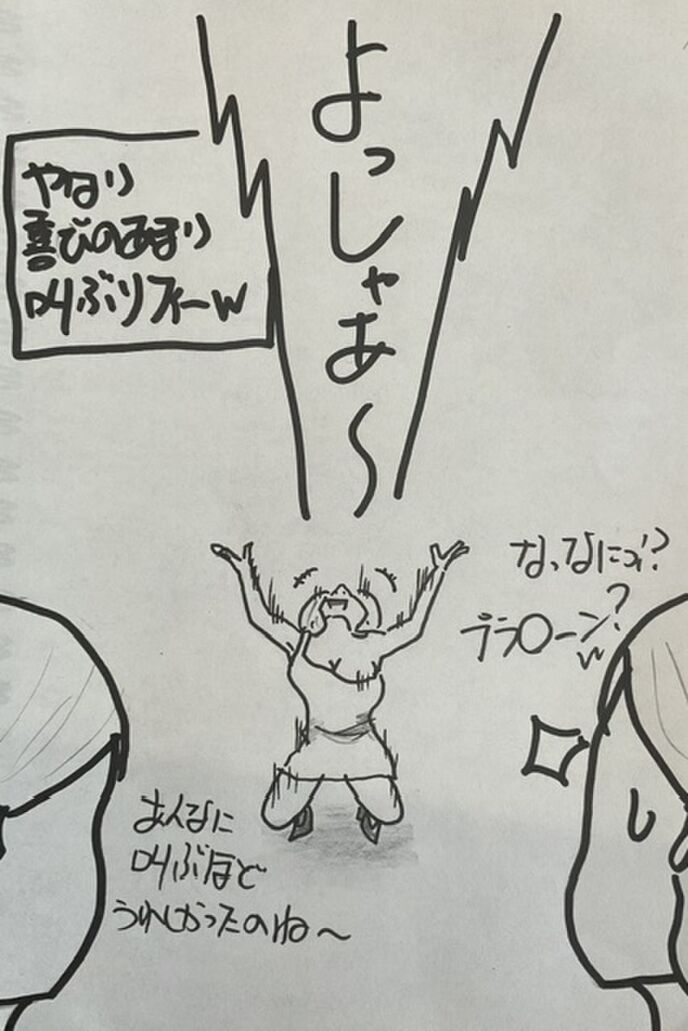 よっしゃあ〜
やはり
喜びのあまり
叫ぶリフィーw
なっなにっ!?
プラ〇ーン?
w
あんなに
叫ぶほど
うれしかったのね〜